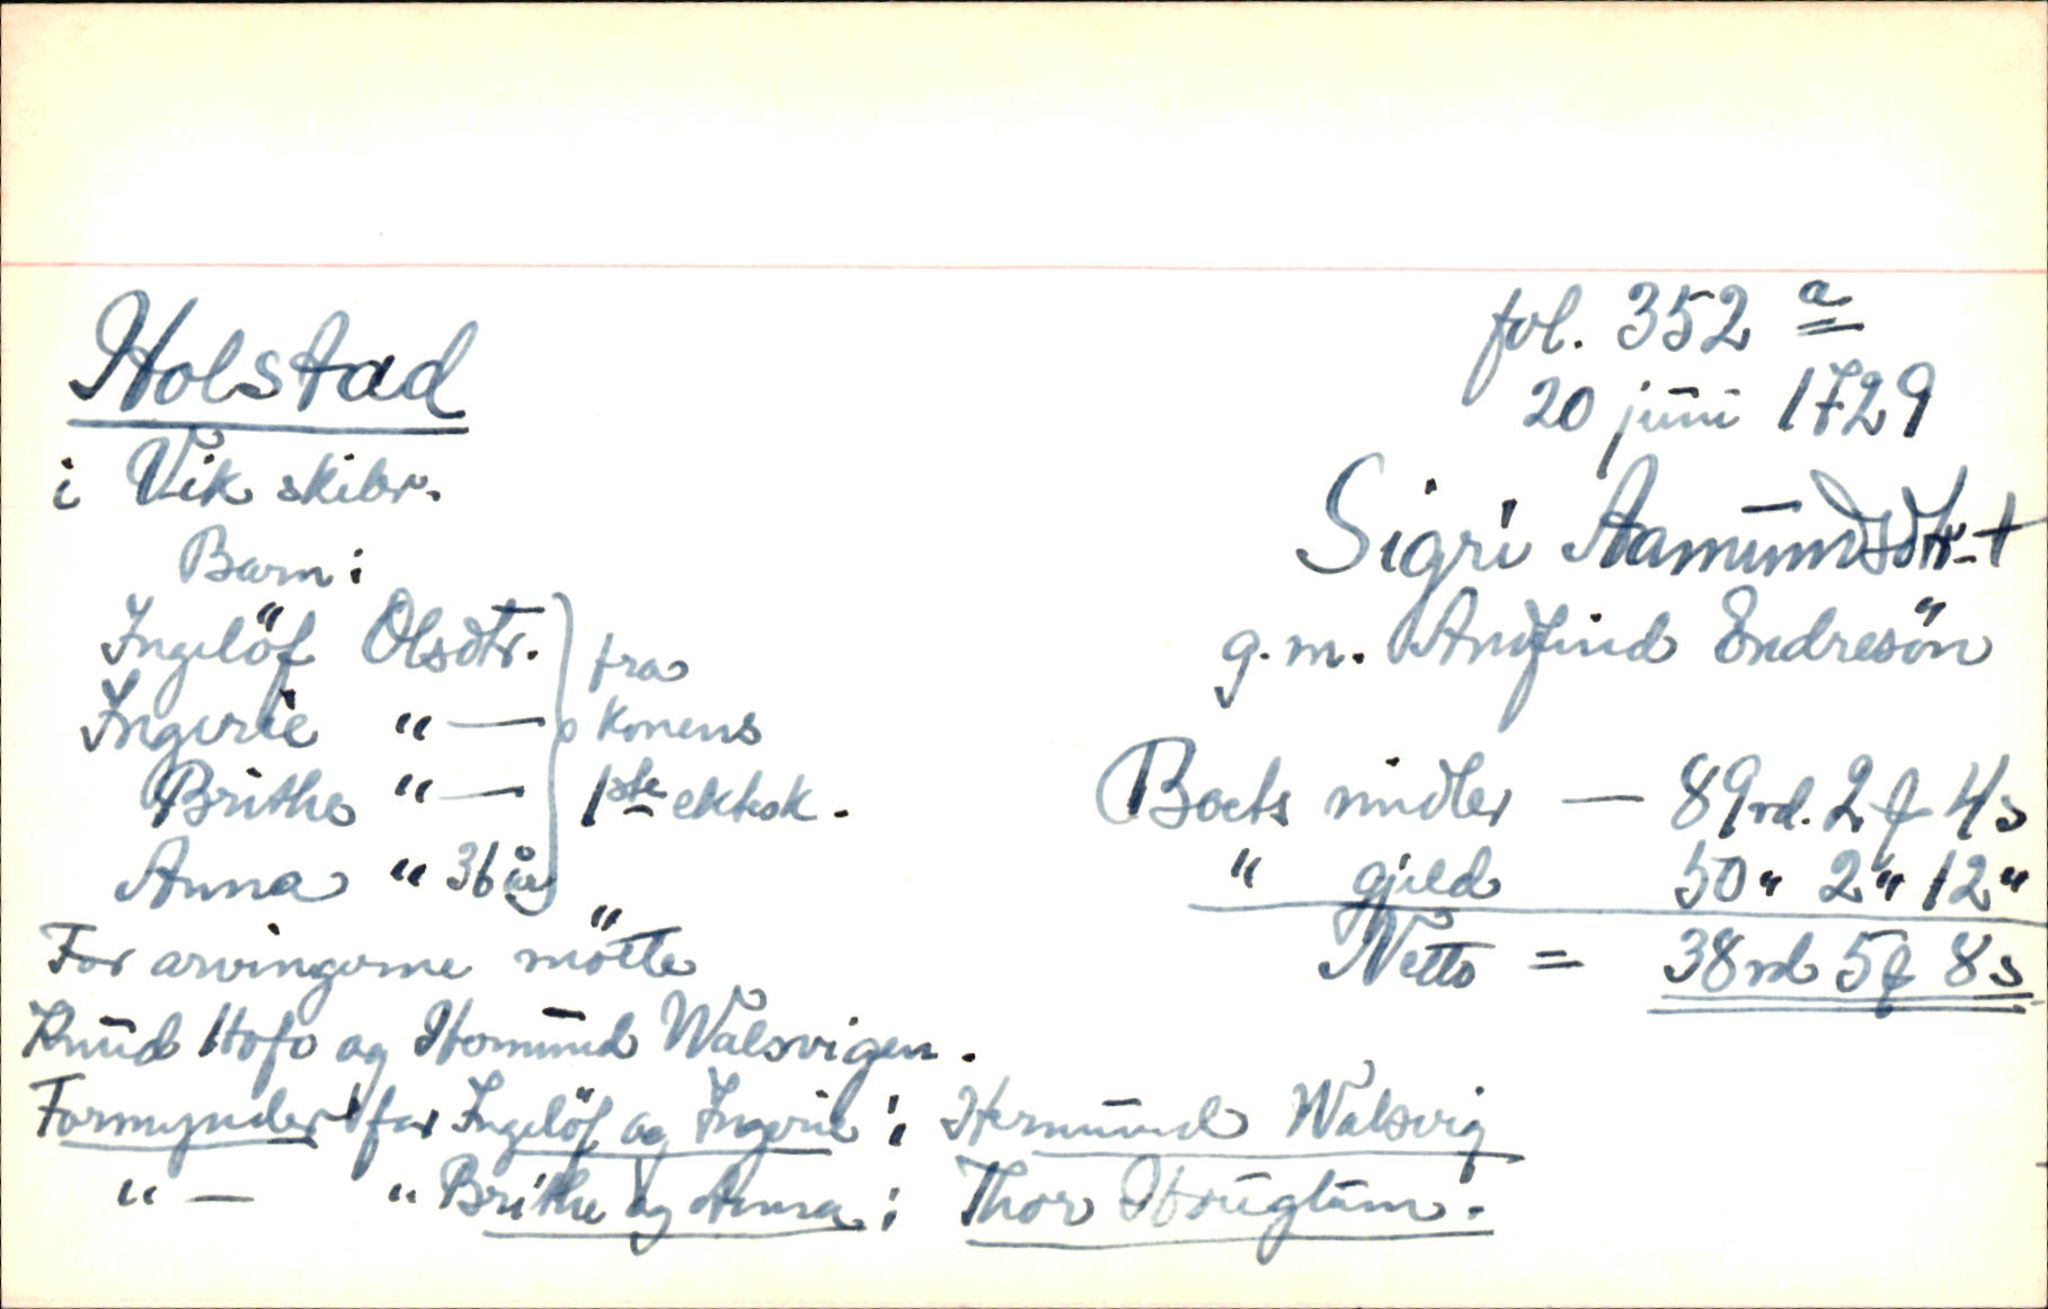 fol. 352 a
20 juni 1729
Holstad
i Vik skibr.
Sigri Aamundsdtr. †
g.m. Andfind Endresön
Barn:
Ingelöf Olsdtr. } fra
Ingerie " — konens
Brithe " — 1ste ektsk.
Anna " 36 år
Boets midler — 89 rd. 2 ₰ 4 s
" gjeld 50 " 2 " 12 "
Netto = 38 rd 5 ₰ 8 s
For arvingerne mötte
Knud Hofo og Homund Walsvigen.
Formynder for Ingelöf og Ingerie: Hermund Walsvig
" — " Brithe og Anna: Thor